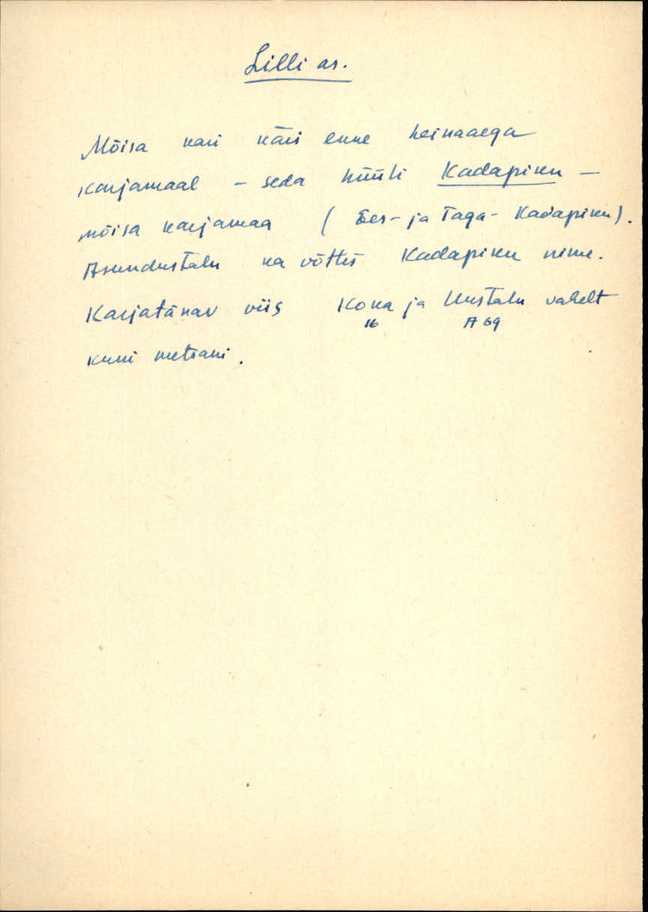 Lilli as.
Mõisa kari käis enne heinaaega
karjamaal – seda hüüti Kadapiku –
mõisa karjamaa (Ees- ja Taga- Kadapiku).
Asundustalu ka võttis Kadapiku nime.
Karjatänav viis Koka ja Uustalu vahelt
16 A 69
kuni metsani.